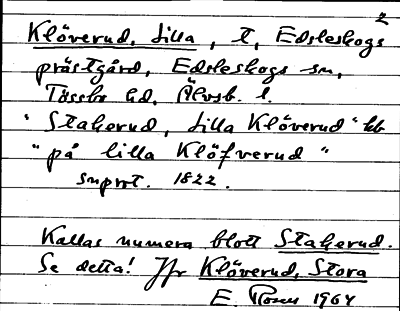 2
Klöverud, Lilla, t, Edsleskogs
prästgård, Edsleskogs sn,
Tössbo hd, Älvsb. l.
"Stakerud, Lilla Klöverud" kb
"på lilla Klöfverud"
snprot. 1822.
Kallas numera blott Stakerud.
Se detta! Jfr Klöverud, Stora
E. 1964